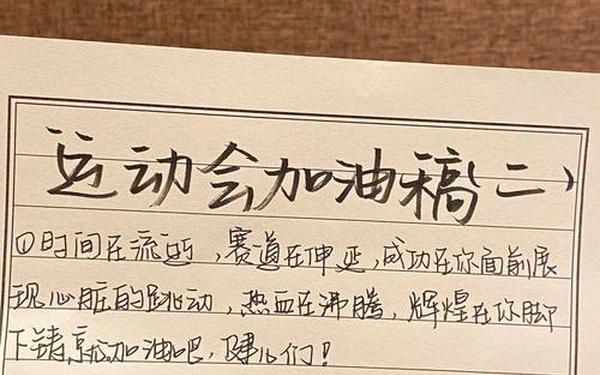 运动会加油稿(二)
①时间在流逝,赛道在伸延,成功在你面前展
现心脏的跳动,热血在沸腾,辉煌在你脚
下铸就加油吧,健儿们!